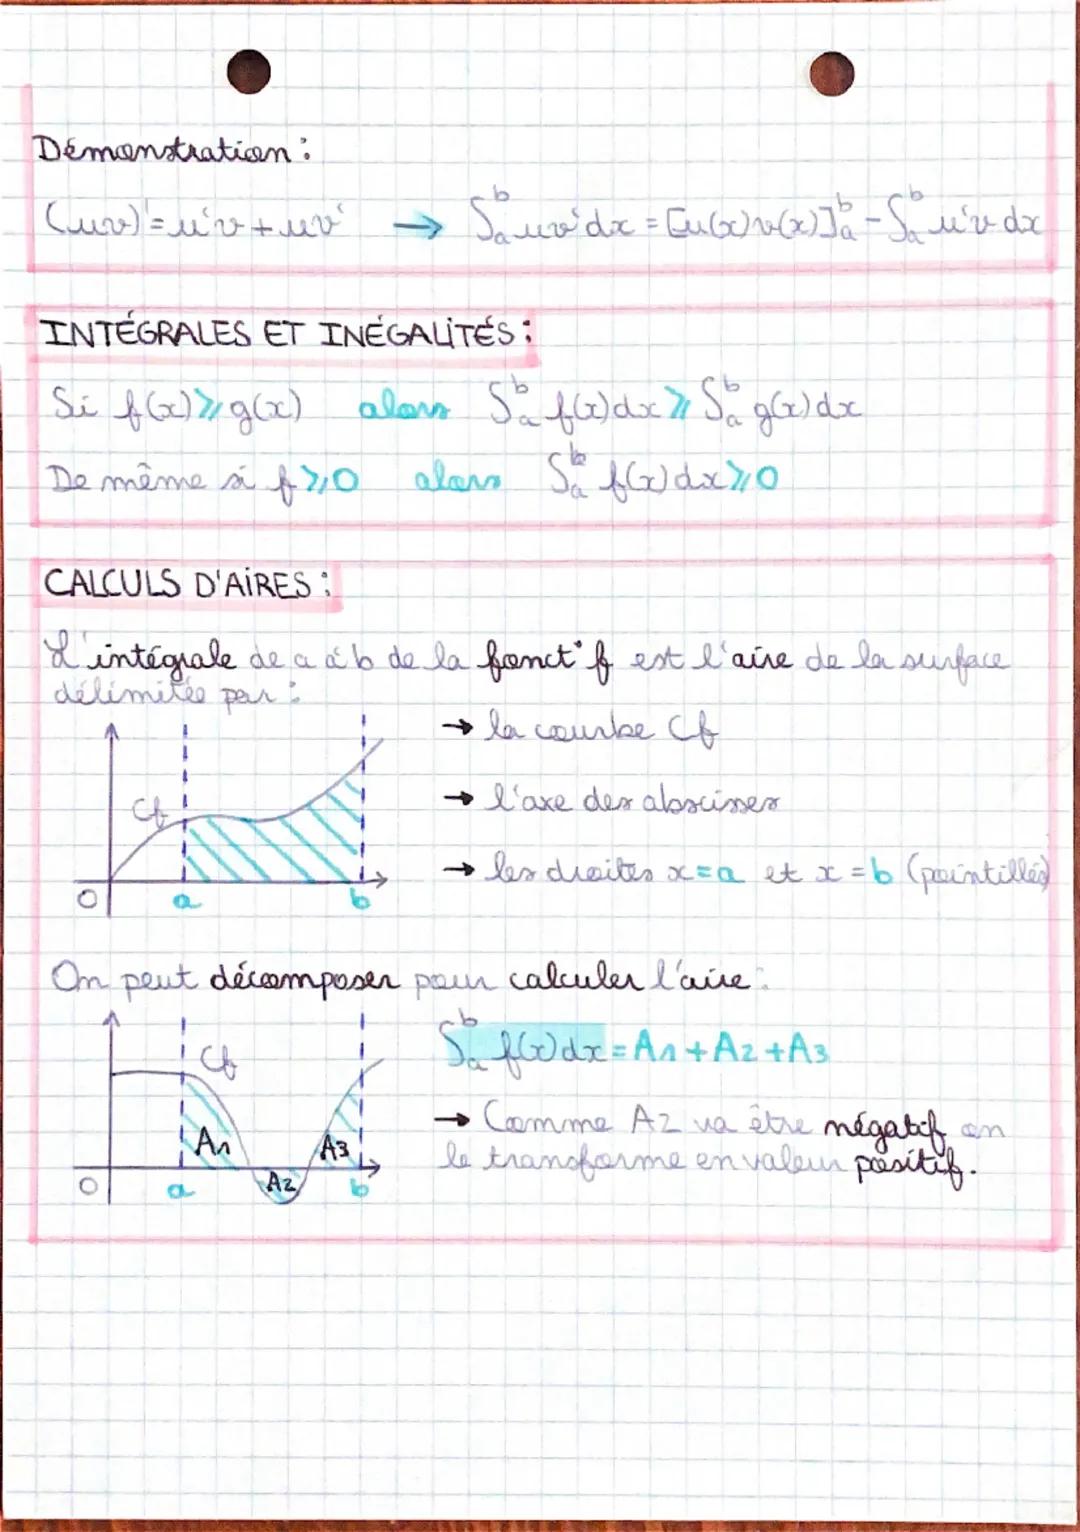 Démonstration :
(uv)' = u'v + uv' → ∫ₐᵇ uv' dx = [u(x)v(x)]ₐᵇ - ∫ₐᵇ u'v dx
INTÉGRALES ET INÉGALITÉS :
Si f(x) ⩾ g(x) alors ∫ₐᵇ f(x) dx ⩾ ∫ₐᵇ g(x) dx
De même si f ⩾ 0 alors ∫ₐᵇ f(x) dx ⩾ 0
CALCULS D'AIRES :
L'intégrale de a à b de la fonct° f est l'aire de la surface
délimitée par :
→ la courbe Cf
→ l'axe des abscisses
→ les droites x = a et x = b (pointillés)
Cf
O a b
On peut décomposer pour calculer l'aire :
∫ₐᵇ f(x) dx = A1 + A2 + A3
→ Comme A2 va être négatif on
le transforme en valeur positif.
Cf
A1 A2 A3
O a b